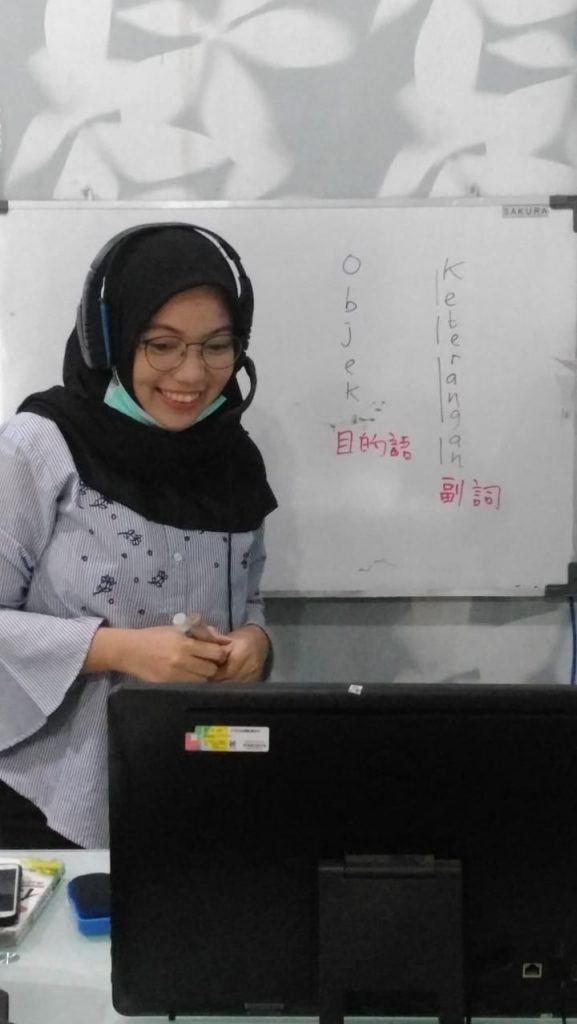 SAKURA
Objek
目的語
Keterangan
副詞